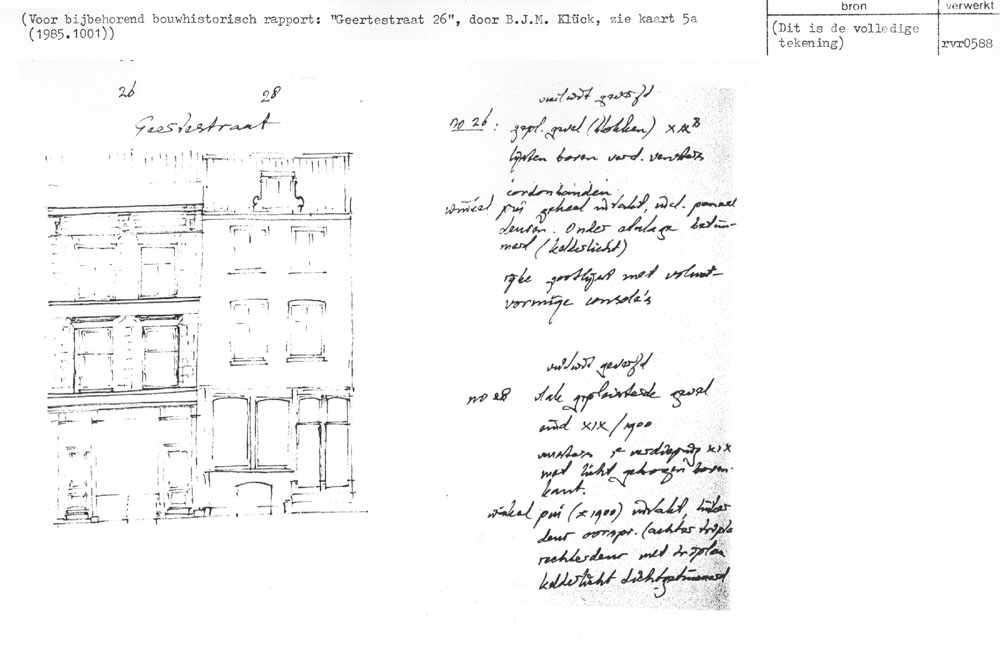 (Voor bijbehorend bouwhistorisch rapport: "Geertestraat 26", door B.J.M. Klück, zie kaart 5a
(1985.1001))
bron
verwerkt
(Dit is de volledige
tekening)
rvr0588
26
28
Geertestraat
vuilwit geverfd
no 26: gepl. gevel (blokken) XIX B
lijsten boven verd. vensters
cordonbanden
winkel pui geheel intakt, incl. paneel
deuren. Onder etalage betim-
merd (kelderlicht)
rijke gootlijst met voluut-
vormige console's
vuilwit geverfd
no 28 vlak gepleisterde gevel
eind XIX/1900
vensters 1e verdieping XIX
met licht gebogen boven-
kant.
winkel pui (± 1900) intakt, linker
deur oorspr. (achter triplex
rechterdeur met triplex
kelderlicht dichtgetimmerd